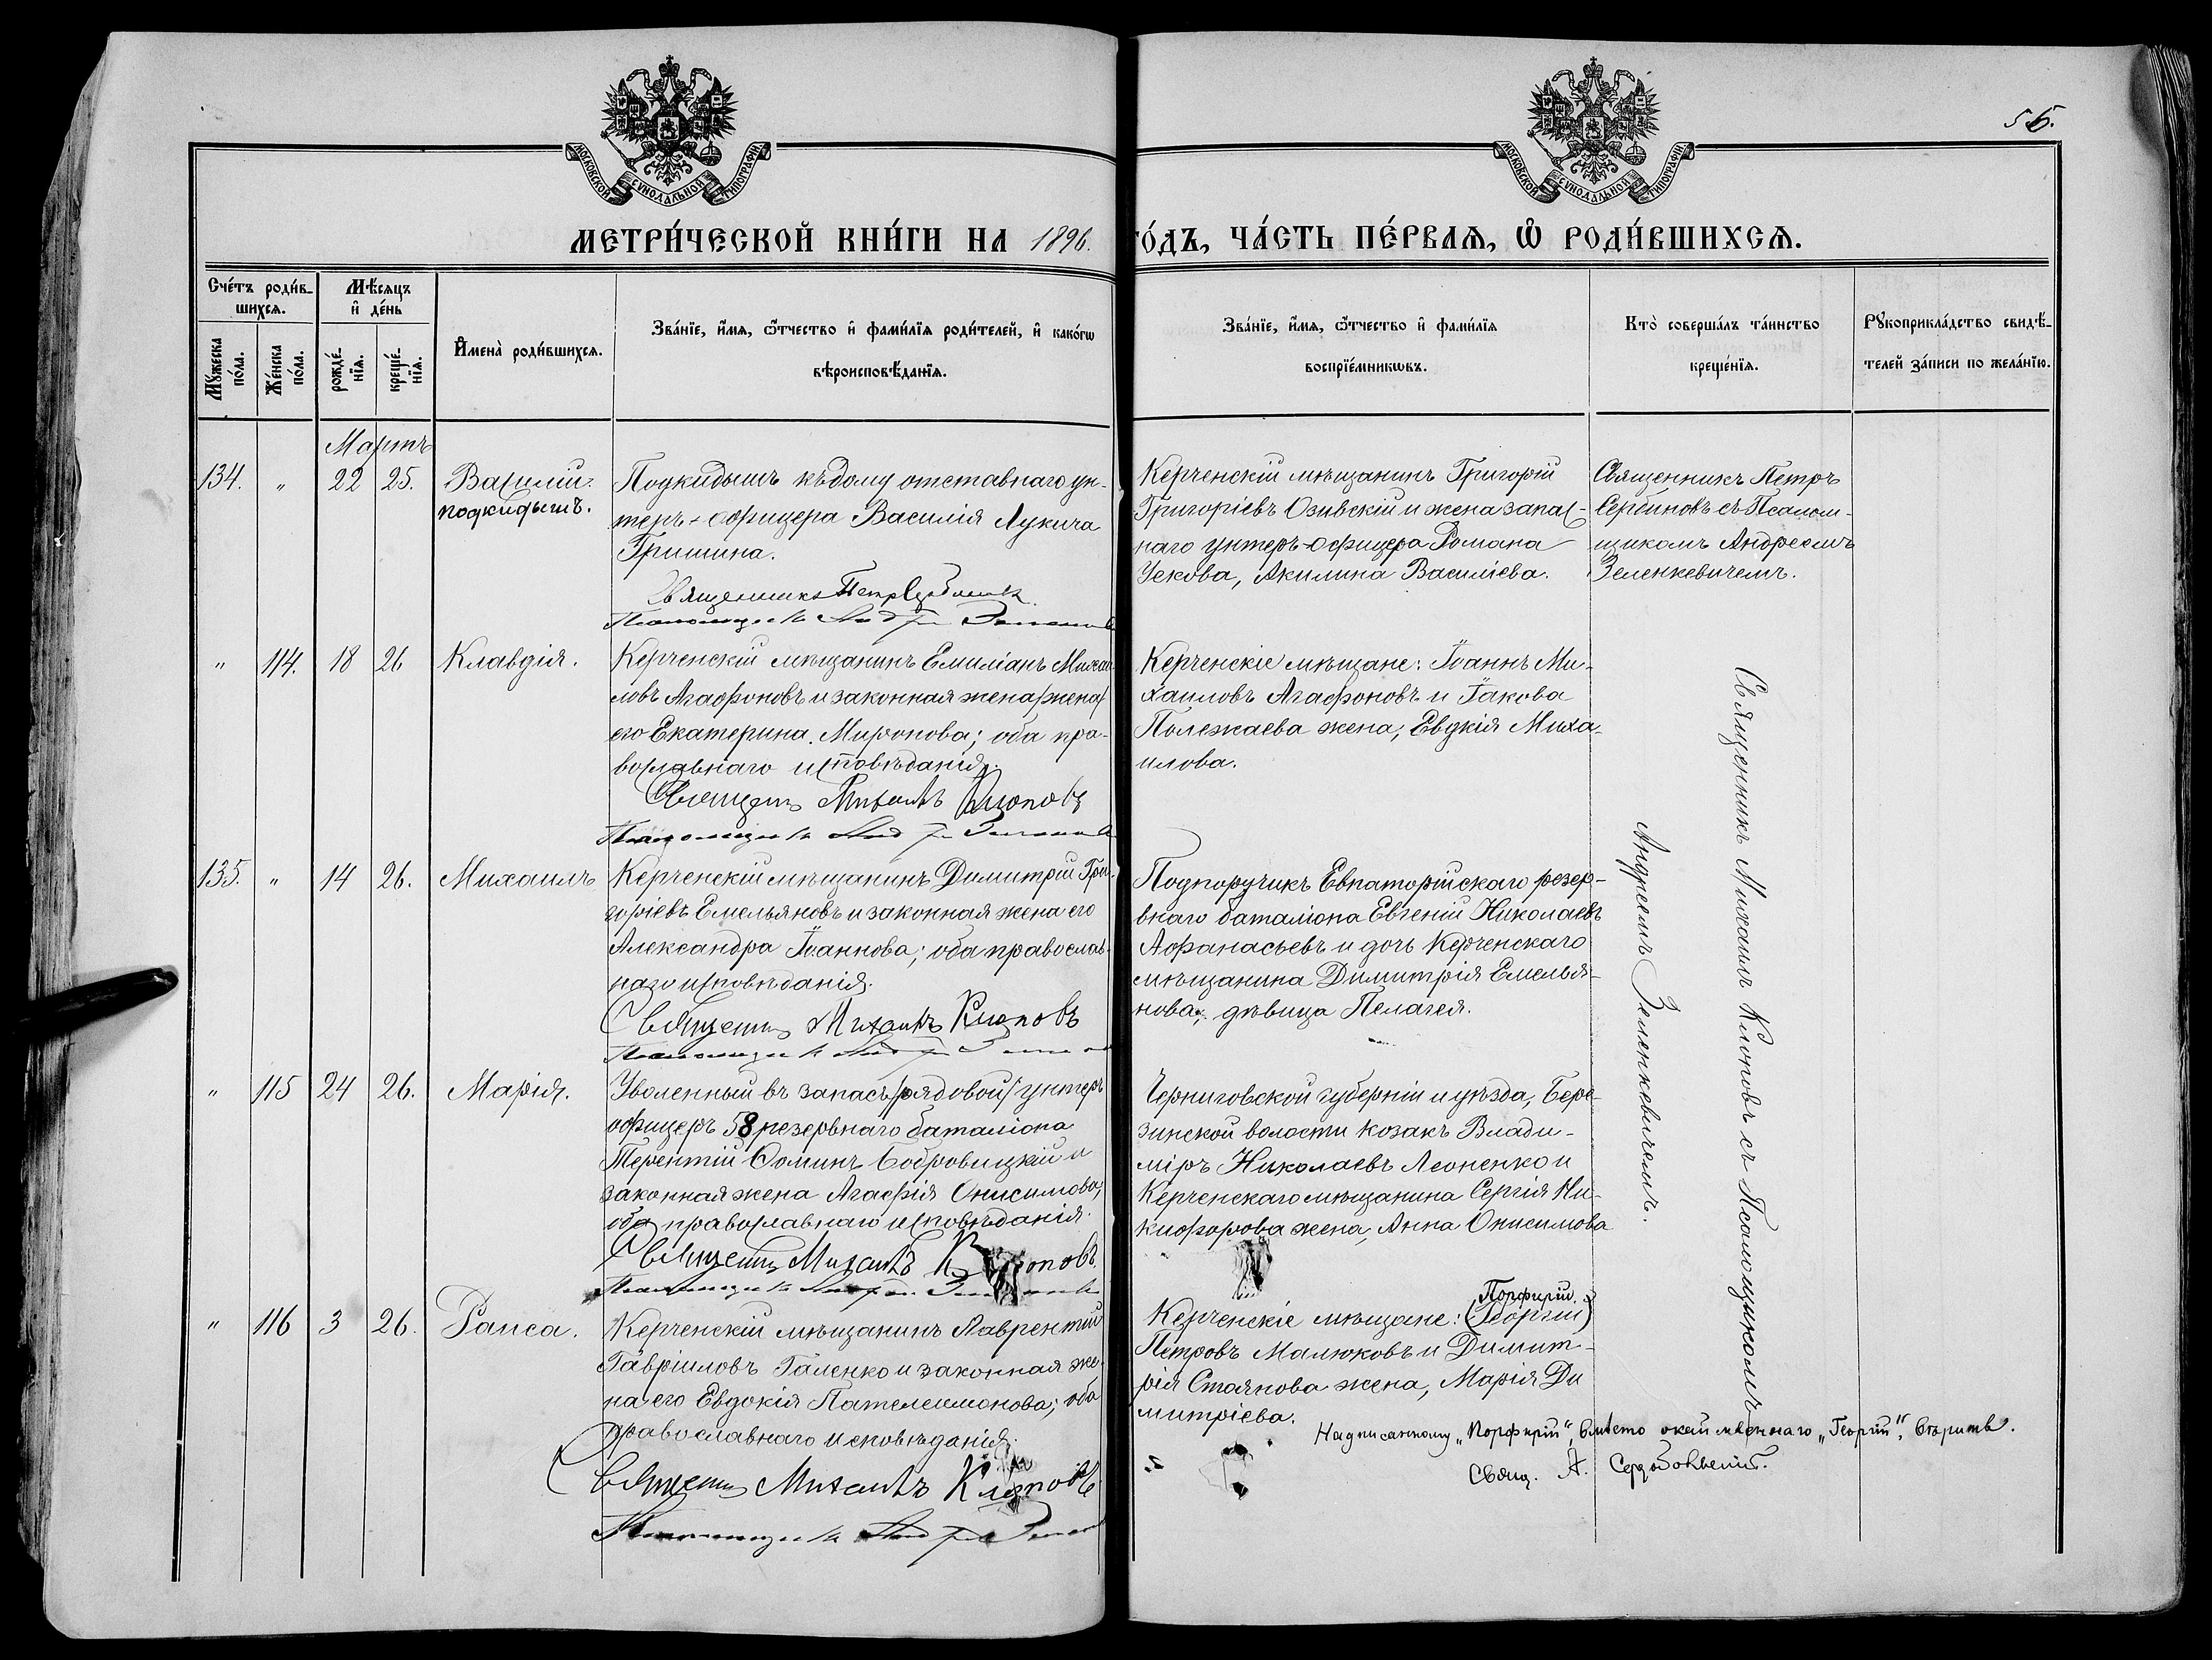 МОСКОВСКОЙ СУНОДАЛЬНОЙ ТИПОГРАФІИ
МОСКОВСКОЙ СУНОДАЛЬНОЙ ТИПОГРАФІИ
56.
МЕТРИ́ЧЕСКОЙ КНИ́ГИ НА 1896.
ГО́ДЪ, ЧА́СТЬ ПЕ́РВАѦ, Ѡ҆ РОДИ́ВШИХСѦ.
Сче́тъ роди́в-
шихсѧ.
Мꙋ́жеска по́ла.
Же́нска по́ла.
Мѣ́сяцъ
и҆ де́нь
рожде́-
нїѧ.
креще́-
нїѧ.
И҆мена̀ роди́вшихсѧ.
Зва́нїе, и҆́мѧ, ѻ҆́тчество и҆ фами́лїѧ роди́телей, и҆ како́гѡ
вѣроисповѣ́данїѧ.
Зва́нїе, и҆́мѧ, ѻ҆́тчество и҆ фами́лїѧ
воспрїе́мникѡвъ.
Кто̀ соверша́лъ та́инство
креще́нїѧ.
Рꙋкоприкла́дство свидѣ́-
телей за́писи по жела́нїю.
Мартъ
134. „ 22 25. Василій.
подкидышъ.
Подкидышъ къ дому отставнаго ун-
теръ-офицера Василія Лукича
Гришина.
Священникъ Петръ Сербиновъ
Керченскій мѣщанинъ Григорій
Григоріевъ Озивскій и жена запас-
наго унтеръ-офицера Романа
Чекова, Акилина Василіева.
Священникъ Петръ
Сербиновъ съ Псалом-
щикомъ Андреемъ
Зеленкевичемъ.
„ 114. 18 26 Клавдія.
Керченскій мѣщанинъ Емиліанъ Михаи-
ловъ Агафоновъ и законная жена /жена/
его Екатерина Миронова; оба пра-
вославнаго исповѣданія.
Священ Михаилъ Клоповъ
Керченскіе мѣщане: Іоаннъ Ми-
хаиловъ Агафоновъ и Іакова
Полежаева жена, Евдкія Миха-
илова.
Священникъ Михаилъ Клоповъ съ Псаломщикомъ
Андреемъ Зеленкевичемъ.
135. „ 14 26. Михаилъ
Керченскій мѣщанинъ Димитрій Гри-
горіевъ Емельяновъ и законная жена его
Александра Іоаннова; оба православ-
наго исповѣданія.
Священ Михаилъ Клоповъ
Подпоручикъ Евпаторійскаго резер-
внаго баталіона Евгеній Николаевъ
Афанасьевъ и дочь Керченскаго
мѣщанина Димитрія Емелья-
нова, дѣвица Пелагея.
„ 115 24 26. Марія.
Уволенный въ запасъ /рядовой/ унтеръ
офицеръ 58 резервнаго баталіона
Терентій Ѳоминъ Бобровицкій и
законная жена Агафія Онисимова,
оба православнаго исповѣданія.
Священ Михаилъ Клоповъ.
Черниговской губерніи и уѣзда, Бере-
зинской волости козакъ Влади-
міръ Николаевъ Леоненко и
Керченскаго мѣщанина Сергія Ни-
кифорова жена, Анна Онисимова
„ 116 3 26. Раиса.
Керченскій мѣщанинъ Лаврентій
Гавріиловъ Галенко и законная же-
на его Евдокія Пателеимонова; оба
православнаго исповѣданія.
Священ Михаилъ Клоповъ
Порфирій.
Керченскіе мѣщане: (Георгій)
Петровъ Малюковъ и Димит-
рія Стоянова жена, Марія Ди
митріева.
Надписанному „Порфирій", вмѣсто окаймленнаго „Георгій", вѣрить.
Свящ. А.